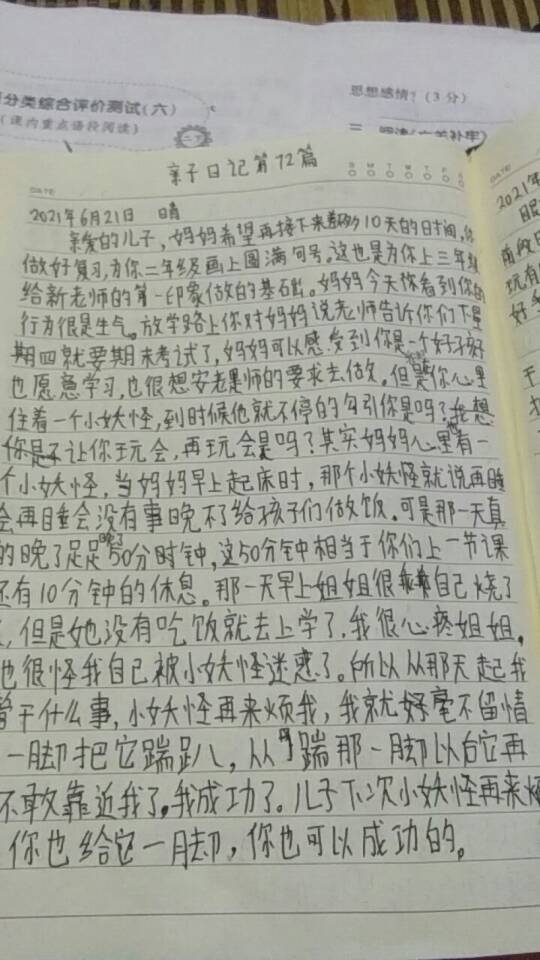 分类综合评价测试(六)
(课内重点语段阅读)
思想感情?(3分)
亲子日记第72篇
DATE
S M T W T F S
2021年6月21日 晴
亲爱的儿子,妈妈希望再接下来差不多10天的日时间,你
做好复习,为你二年级画上圆满句号。这也是为你上三年级
给新老师的第一印象做的基石出。妈妈今天你看到你的
行为很是生气。放学路上你对妈妈说老师告诉你们下星
期四就要期末考试了,妈妈可以感受到你是一个好孩子
也愿急学习,也很想安老师的要求去做。但是你心里
住着一个小妖怪,到时候他就不停的勾引你是吗?我想
你是不让你玩会,再玩会是吗?其实妈妈心里也有一
个小妖怪,当妈妈早上起床时,那个小妖怪就说再睡
会再睡会没有事晚不了给孩子们做饭。可是那一天真
的晚了足足晚了50分时钟,这50分钟相当于你们上一节课
还有10分钟的休息。那一天早上姐姐很乖自己烧了
,但是她没有吃饭就去上学了,我很心疼姐姐。
也很怪我自己被小妖怪迷惑了。所以从那天起我
管干什么事,小妖怪再来烦我,我就好毫不留情
一脚把它踹趴,从踹那一脚以后它再
不敢靠近我了。我成功了。儿子下次小妖怪再来烦
你也给它一脚,你也可以成功的。
DATE
2021年